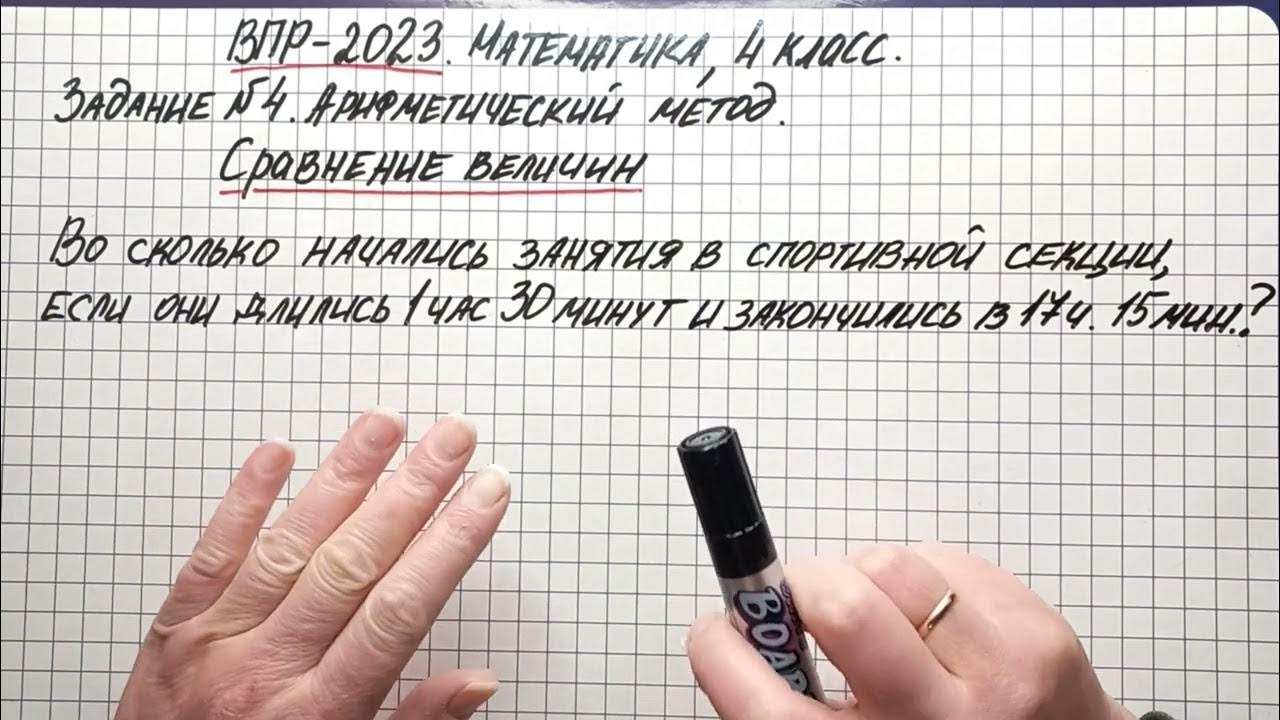 ВПР-2023. Математика, 4 класс.
Задание №4. Арифметический метод.
Сравнение величин
Во сколько начались занятия в спортивной секции,
если они длились 1 час 30 минут и закончились в 17 ч. 15 мин.?
BOAR